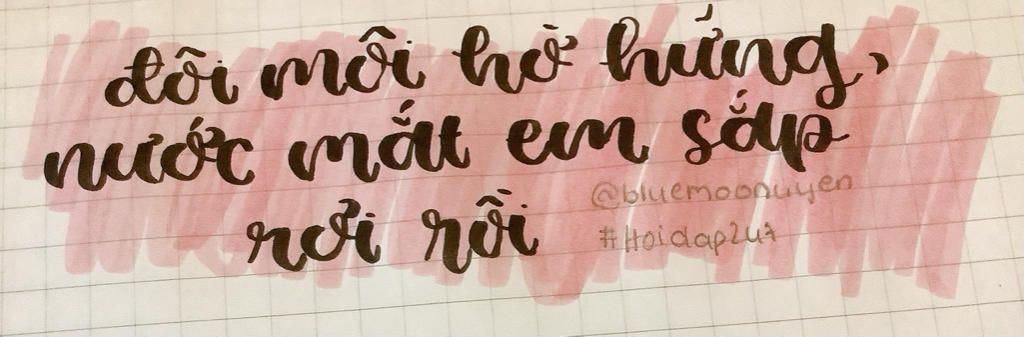 đôi môi hờ hứng,
nước mắt em sắp
rơi rồi
@bluemoonuyen
#Hoidap247